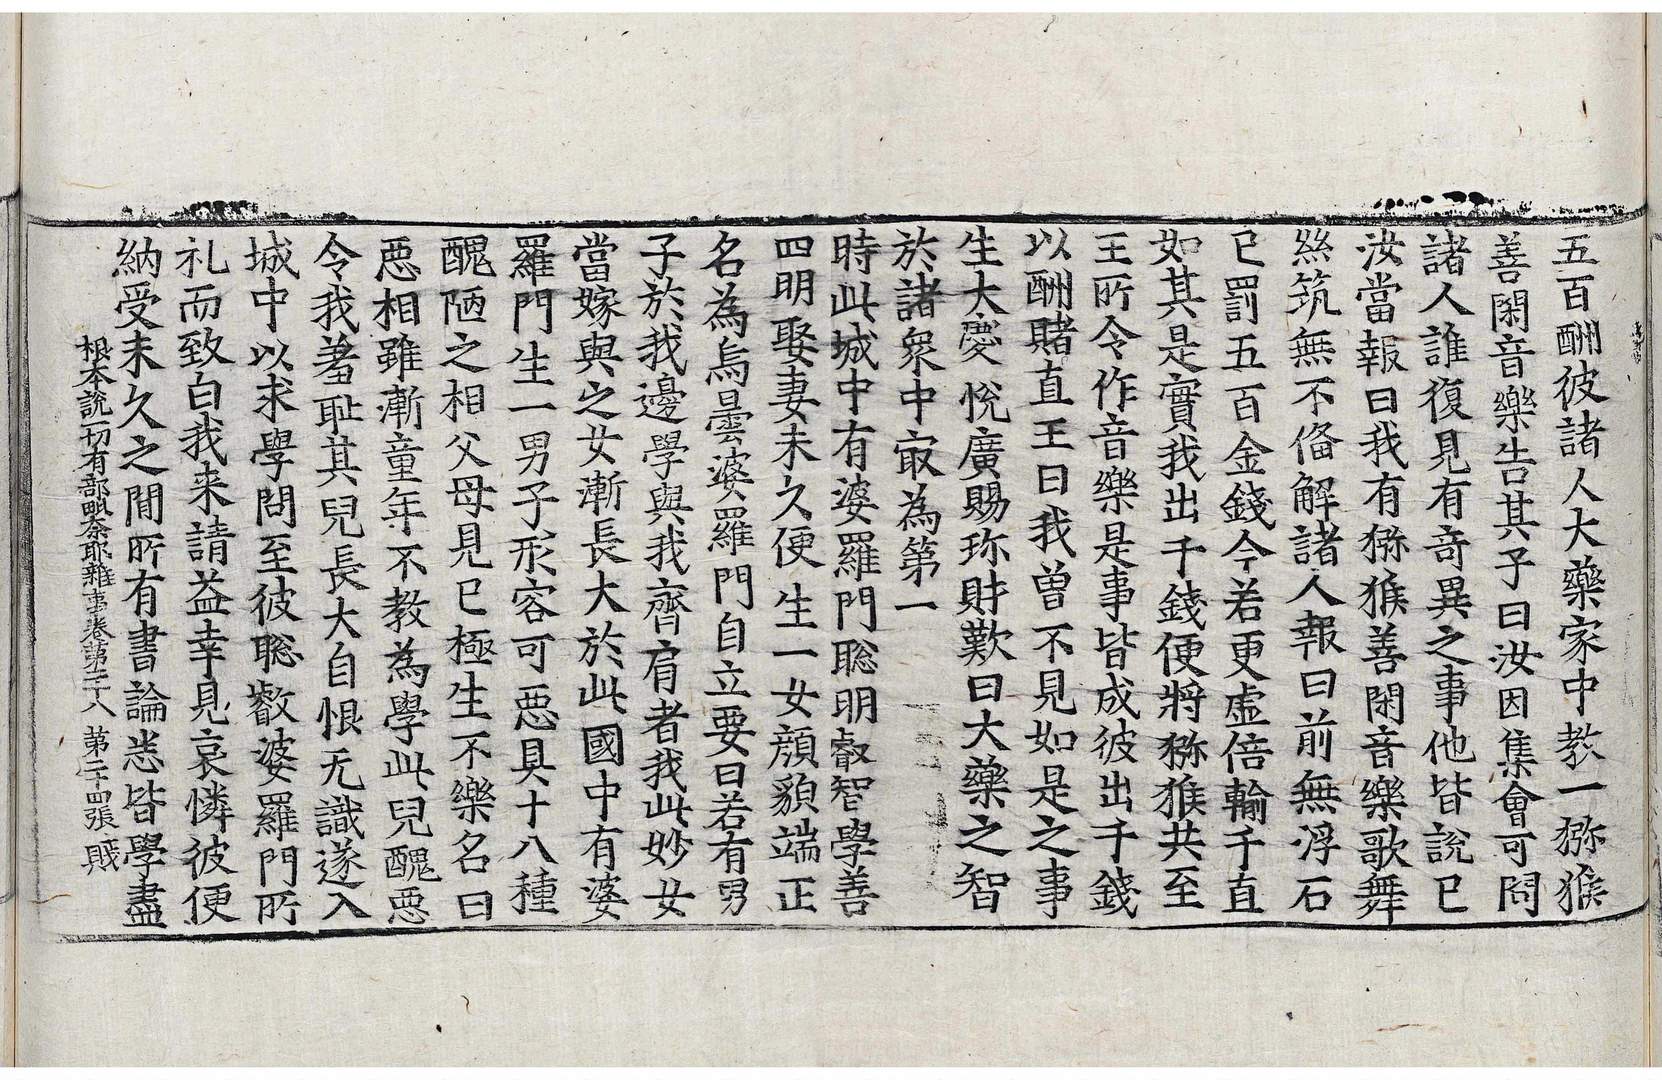 五百酬彼諸人大藥家中教一猕猴
善閑音樂告其子曰汝因集會可問
諸人誰復見有奇異之事他皆說已
汝當報曰我有猕猴善閑音樂歌舞
絲筑無不俻解諸人報曰前無浮石
已罰五百金錢今若更虛倍輸千直
如其是實我出千錢便將猕猴共至
王所令作音樂是事皆成彼出千錢
以酬賭直王曰我曾不見如是之事
生大慶悅廣賜珎財歎曰大藥之智
於諸衆中㝡為第一
時此城中有婆羅門聡明叡智學善
四明娶妻未久便生一女顔貌端正
名為烏曇婆羅門自立要曰若有男
子於我邊學與我齊肩者我此妙女
當嫁與之女漸長大於此國中有婆
羅門生一男子形容可惡具十八種
醜陋之相父母見已極生不樂名曰
惡相雖漸童年不教為學此兒醜惡
令我羞耻其兒長大自恨无識遂入
城中以求學問至彼聡叡婆羅門所
礼而致白我来請益幸見哀憐彼便
納受未久之間所有書論悉皆學盡
根本說一切有部毗奈耶雜事卷第二十八 第二十四張 賤